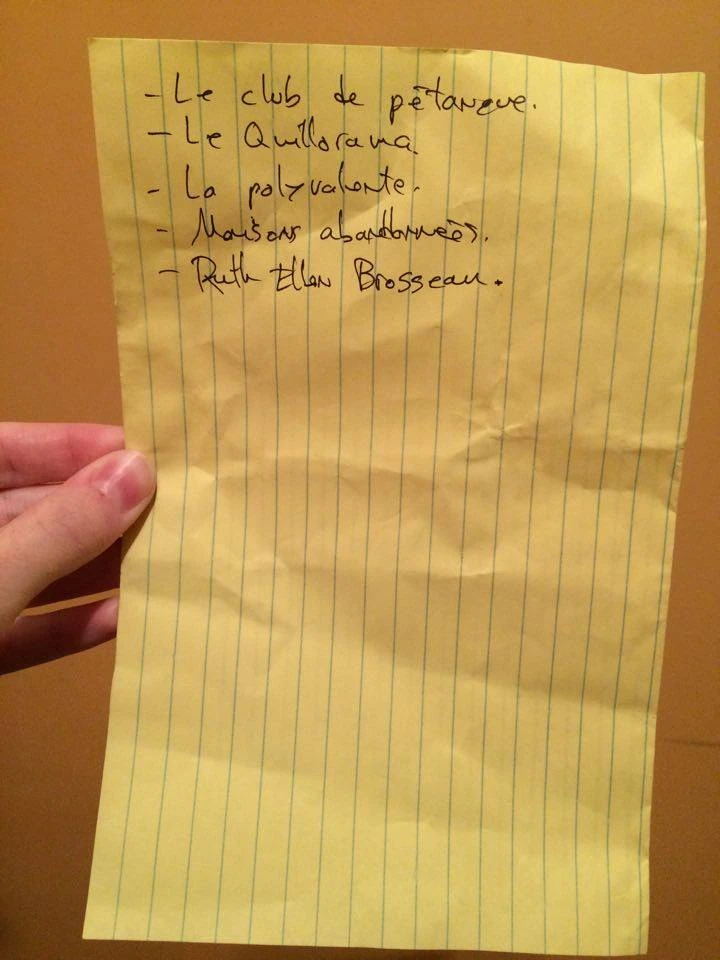 - Le club de pétanque.
- Le Quillorama.
- La polyvalente.
- Maisons abandonnées.
- Ruth Ellen Brosseau.